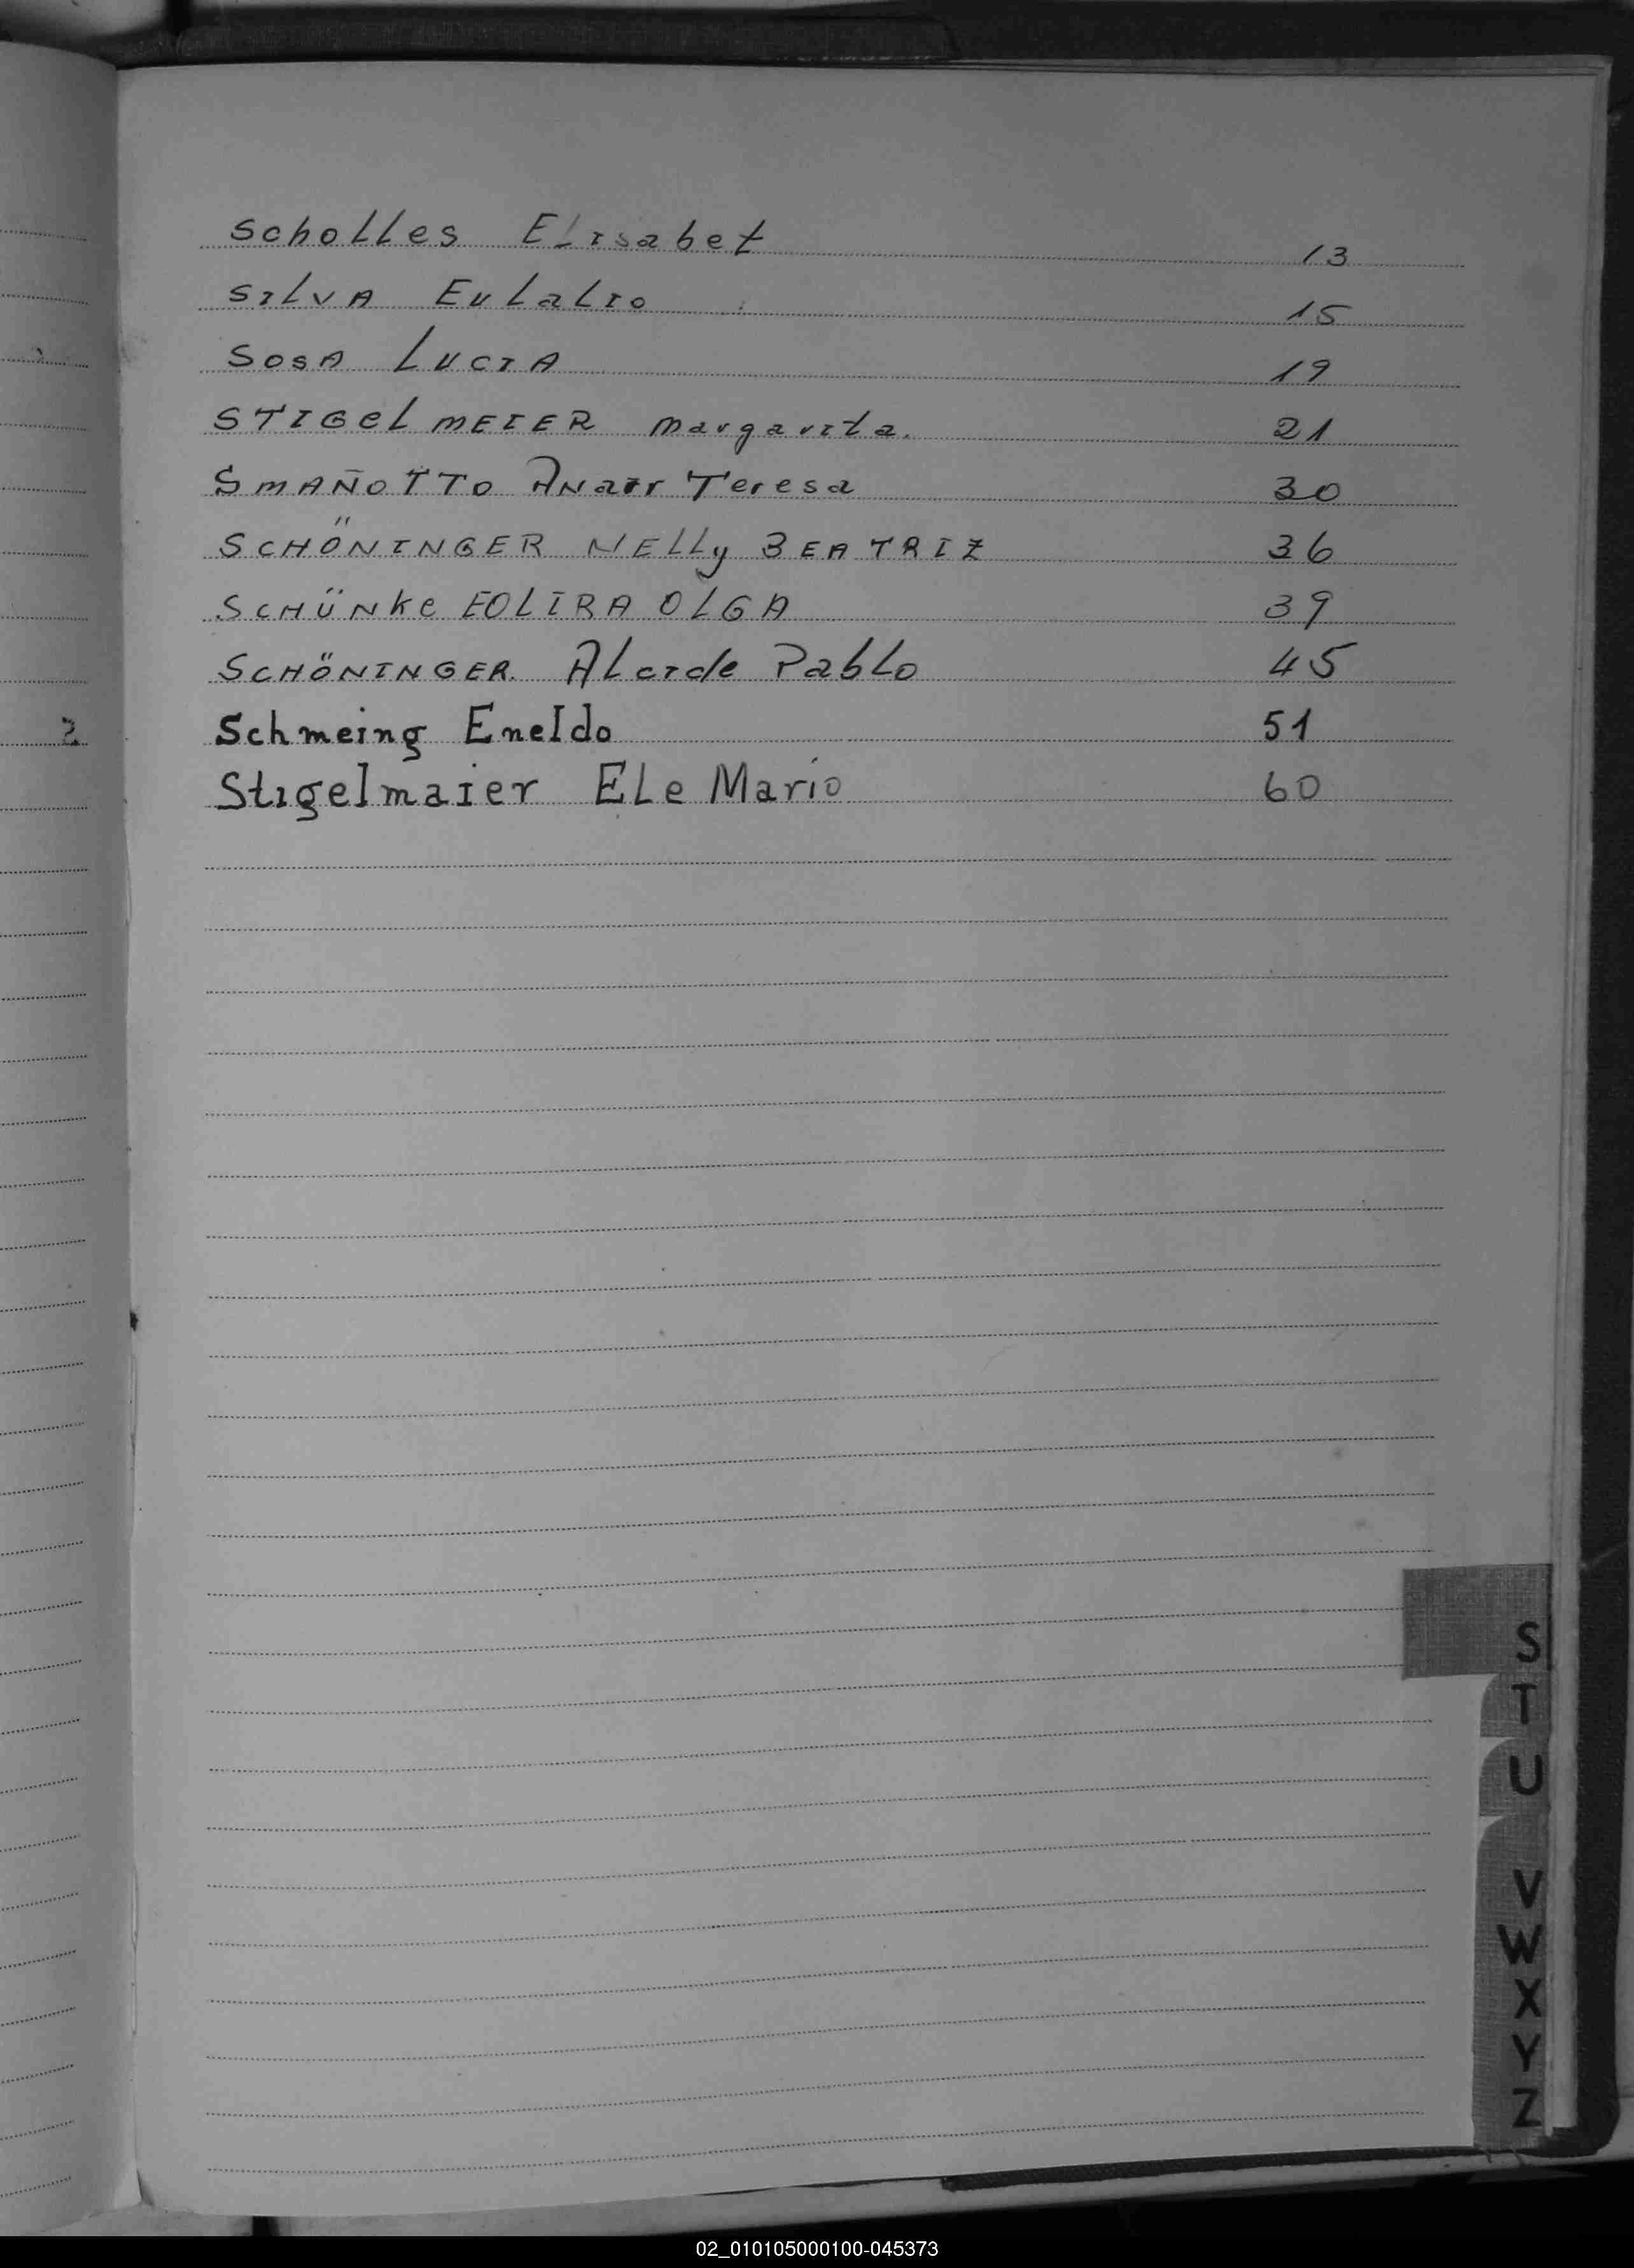 Scholles Elisabet 13
Silva Eulalio 15
Sosa Lucia 19
STIGelmEIER margarita. 21
SMAÑOTTO Anair Teresa 30
SCHÖNINGER NELLy BEATRIZ 36
SCHÜNKe EOLIRA OLGA 39
SCHÖNINGER. Alcide Pablo 45
Schmeing Eneldo 51
Stigelmaier Ele Marío 60
S
T
U
V
W
X
Y
Z
02_010105000100-045373